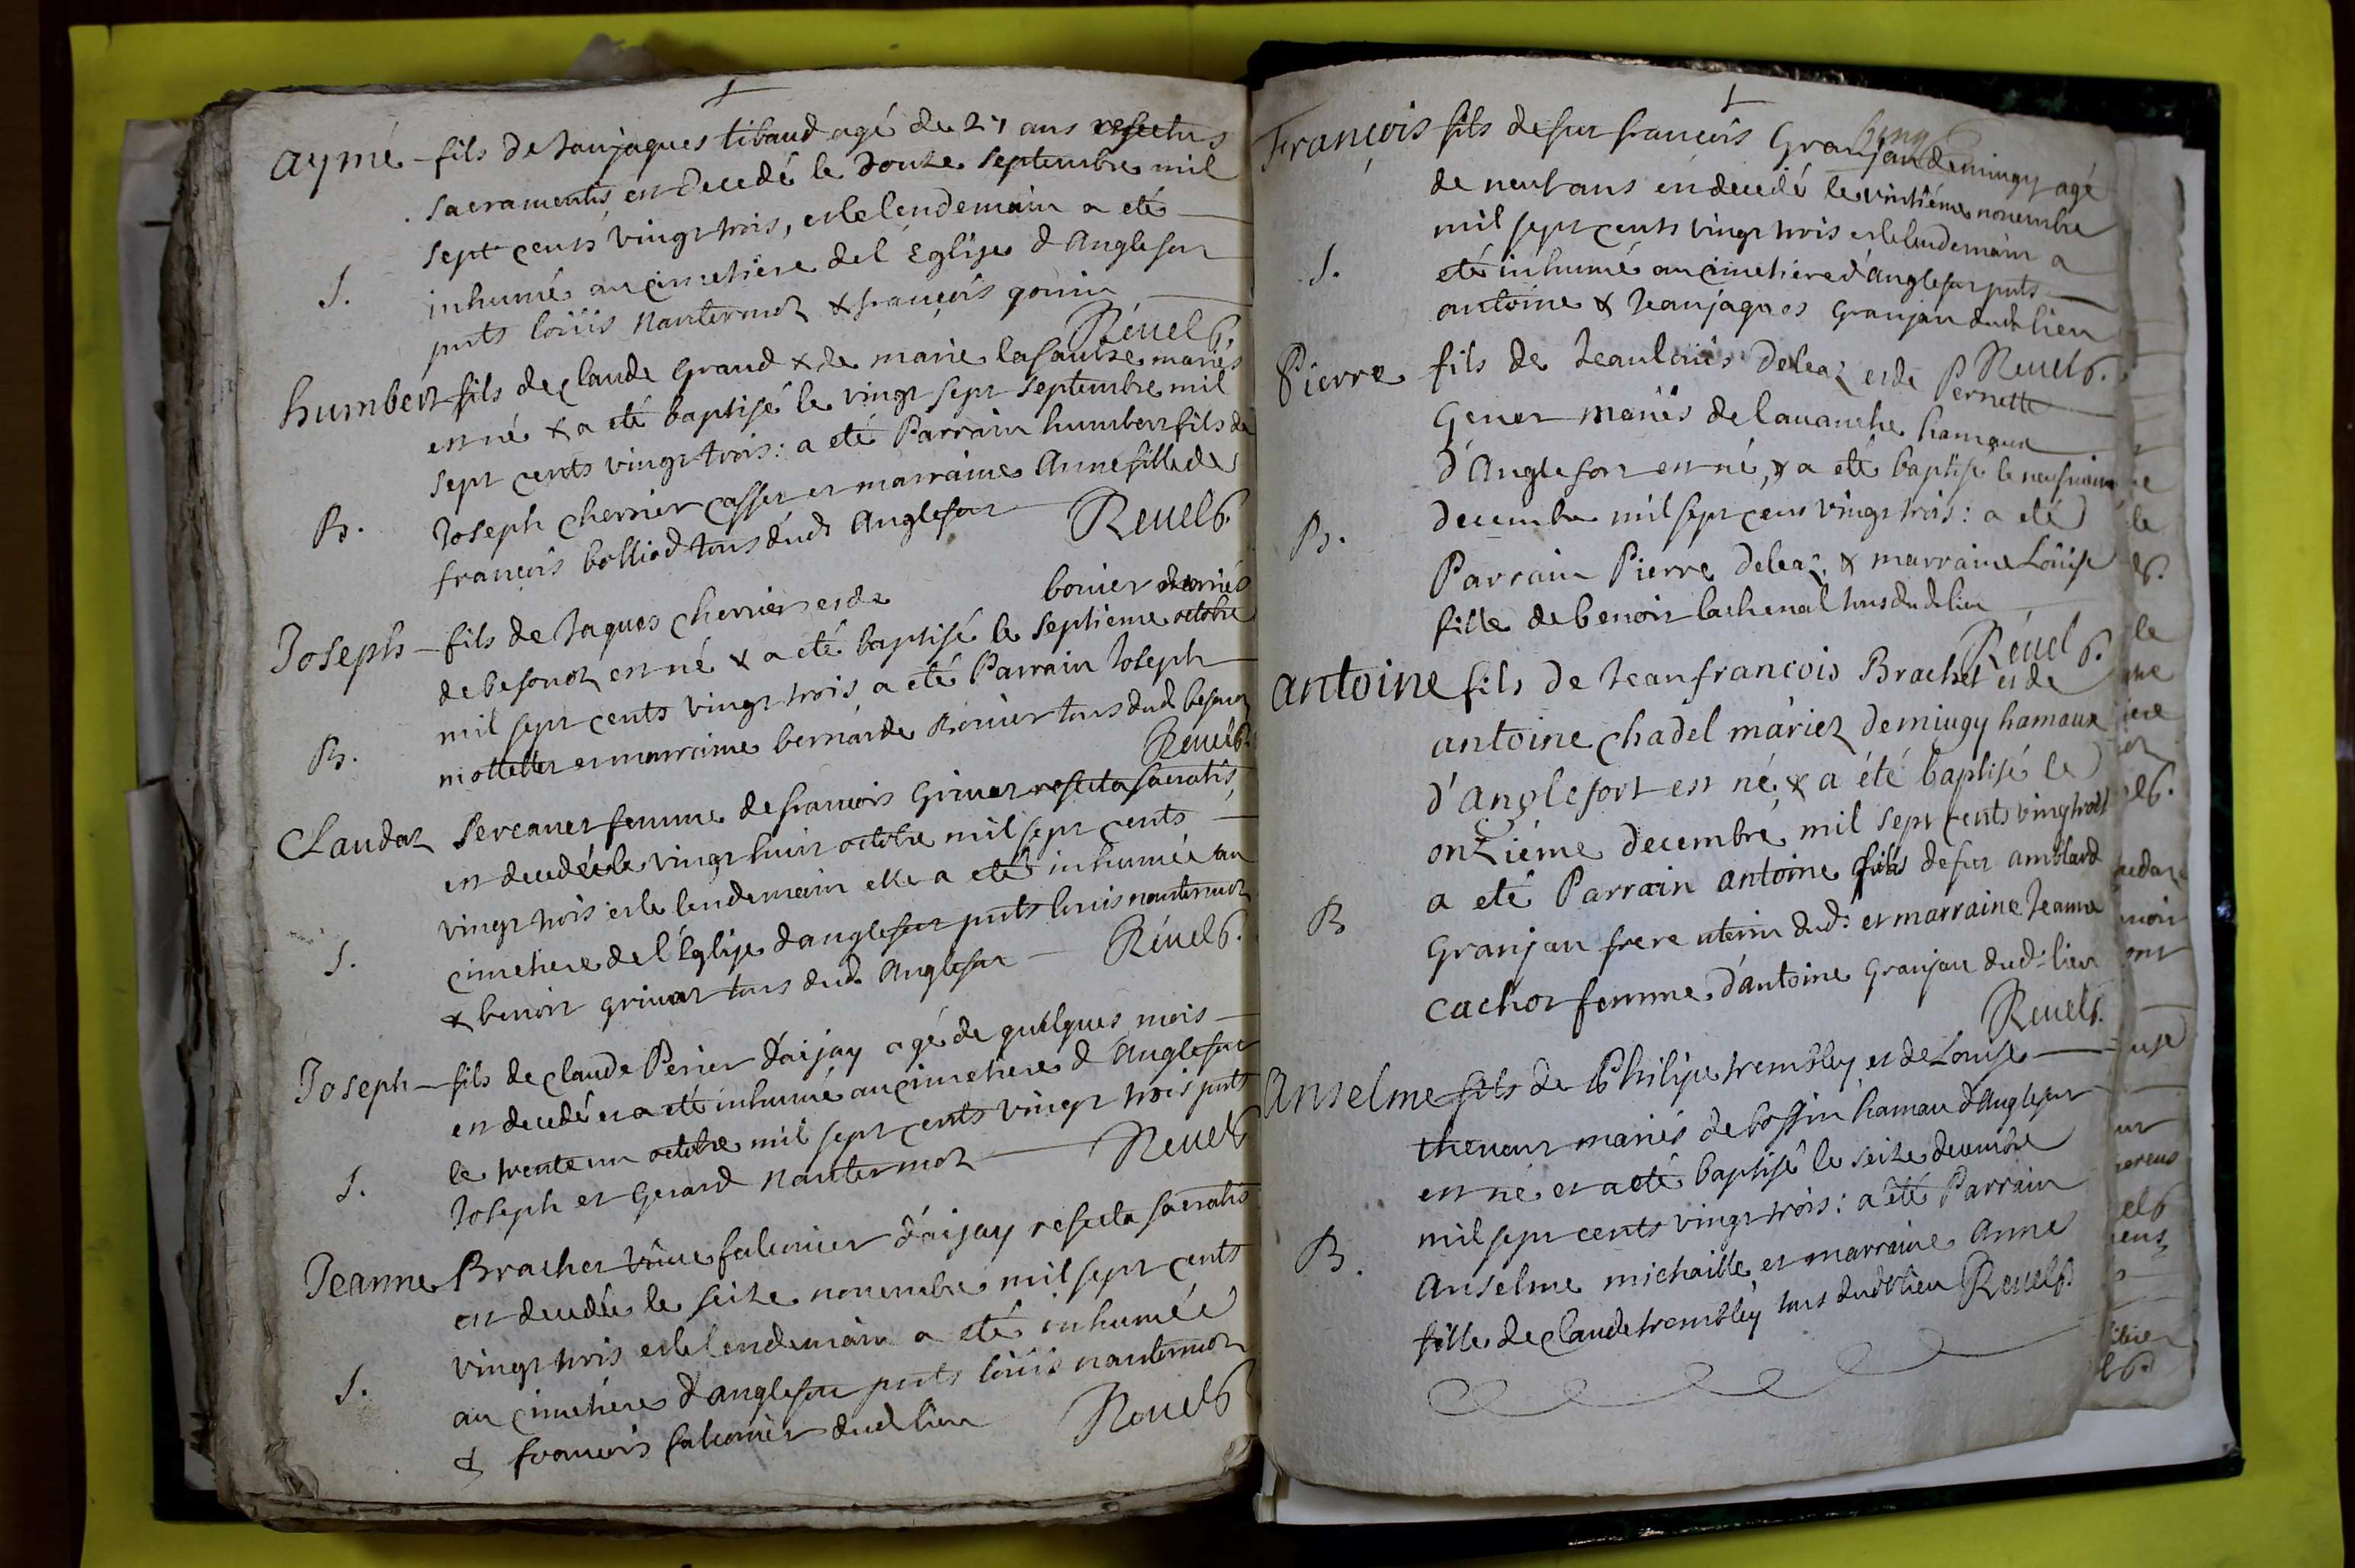 aymé fils de Jeanjaques tibaud agé de 27 ans refectus
sacramentis est decedé le douze septembre mil
sept cents vingt trois, et le lendemain a eté
S. inhumé au cimetiere de l'église d'Anglefort
pnts loüis nantermoz & françois goinin
Réuel
humbert fils de claude grand & de marie lafauise mariés
est né & a eté baptisé le vingt sept septembre mil
sept cents vingt trois: a eté Parrain humbert fils de
B. Joseph cherrier et marraine Anne fille de
françois bolliod tous dud Anglefort
Reuel
Joseph fils de Jaques cherrier et de bouier mariés
de besonoz est né & a eté baptisé le septieme octobre
mil sept cents vingt trois a eté Parrain Joseph
B. miottellier et marraine bernarde Bouier tous dud besonoz
Reuel
Claudaz femme de françois Grinar refecta sacratis
est decedée le vingt huit octobre mil sept cents
vingt trois et le lendemain elle a eté inhumée au
S. cimetiere de l'Eglise d'anglefort pnts loüis nantermoz
& benoit grinar tous dud Anglefort
Réuel
Joseph fils de claude Perier d'aijay agé de quelques mois
est decedé et a eté inhumé au cimetiere d'Anglefort
le trente un octobre mil sept cents vingt trois pnts
S. Joseph et Gerard Nantermoz
Reuel
Jeanne Bracher falconier d'aijay refecta sacratis
est decedée le seize novembre mil sept cents
vingt trois et le lendemain a eté inhumée
S. au cimetiere d'anglefort pnts loüis nantermoz
& françois falconier dud lieu
Reuel
François fils de feu françois Granjan de mingy agé
de neuf ans est decedé le vintiéme novembre
mil sept cents vingt trois et le lendemain a
S. eté inhumé au cimetiere d'Anglefort pnts
antoine & Jeanjaques Granjan dud lieu
Reuel
Pierre fils de Jeanloüis Deleaz et de Pernette
Gener mariés de lauanche hamaux
d'Anglefort est né, & a eté baptisé le neufvieme
B. decembre mil sept cens vingt trois: a eté
Parrain Pierre Deleaz & marraine Loüise
fille de benoit lachenal tous dud lieu
Réuel
antoine fils de Jeanfrancois Brachet et de
antoine chadel mariez de mingy hamaux
d'anglefort est né, & a été baptisé le
onziéme decembre mil sept cents vingt trois
a eté Parrain antoine fils de feu amblard
B Granjan frere uterin dud: et marraine Jeanne
Cachot femme d'antoine Granjan dud: lieu
Reuel
Anselme fils de Philipe trembley et de Louise
thevenr mariés de boffin hamau d'Anglefort
est né et a eté baptisé le seize decembre
mil sept cents vingt trois: a été Parrain
B. anselme michaille et marraine anne
fille de claude trembley tous dud lieu Reuel